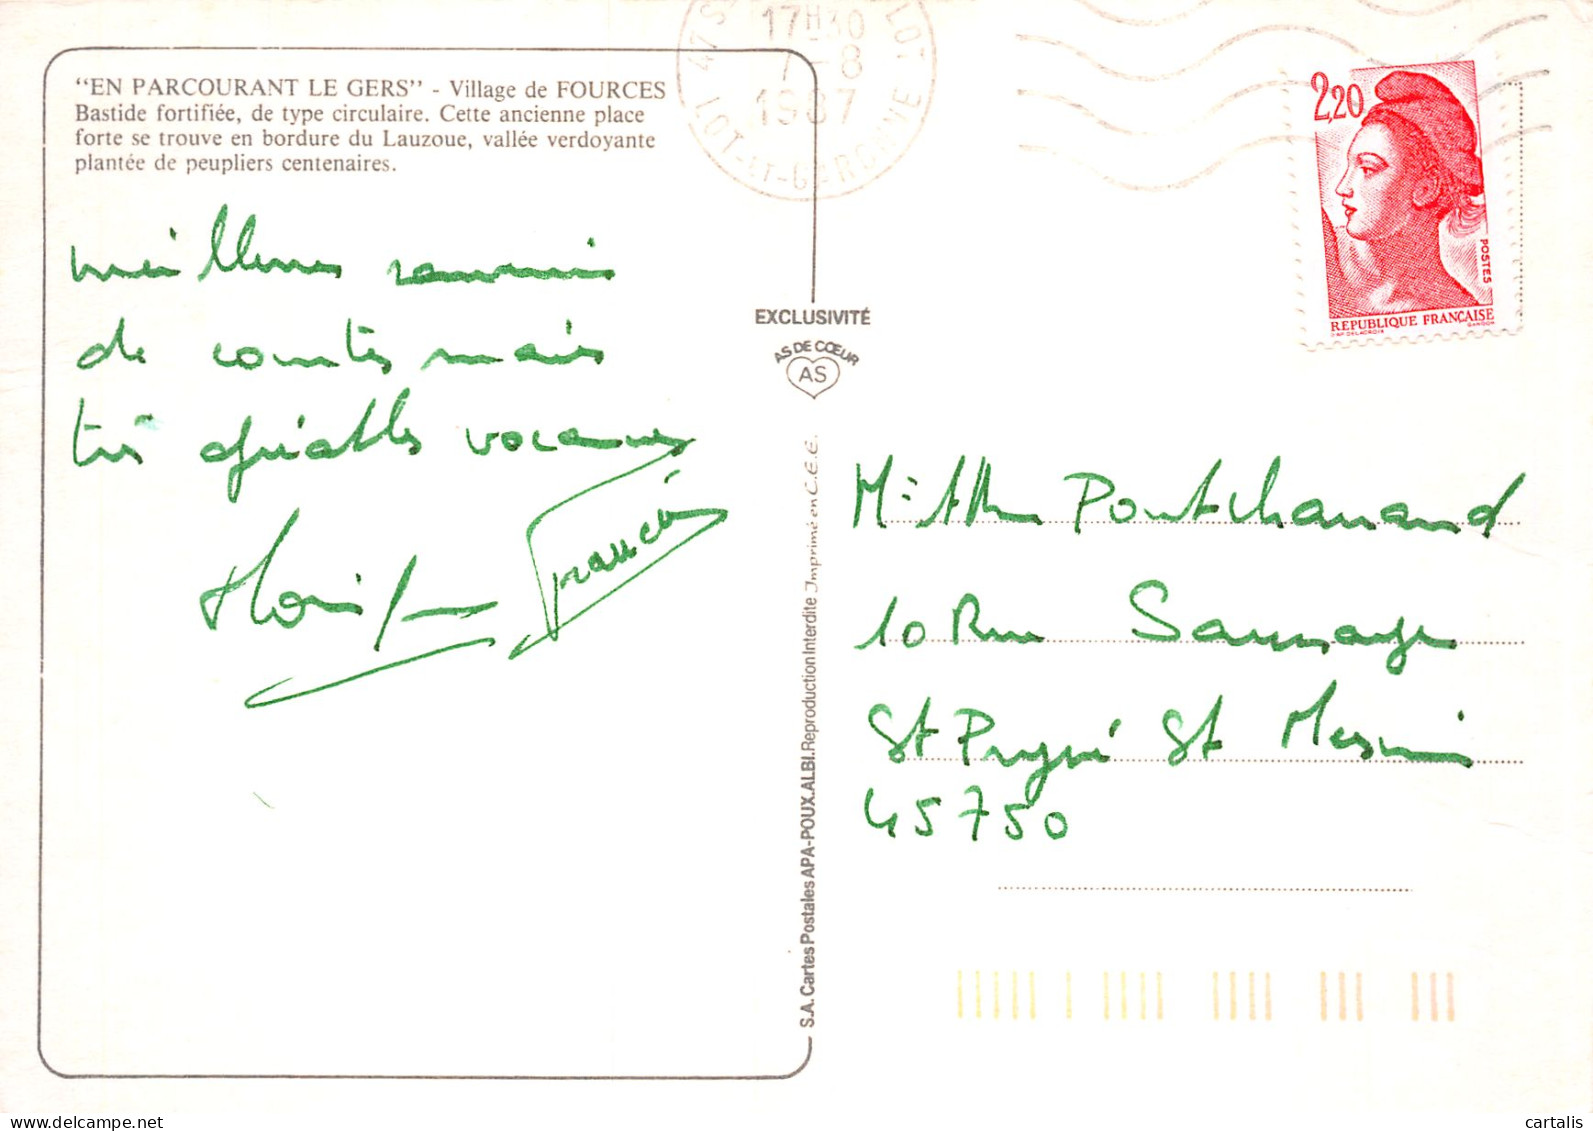 "EN PARCOURANT LE GERS" - Village de FOURCES
Bastide fortifiée, de type circulaire. Cette ancienne place
forte se trouve en bordure du Lauzoue, vallée verdoyante
plantée de peupliers centenaires.
meilleurs souvenirs
de courtes mais
très agréables vacances
Francis
17H30
7-8
1987
47 S
LOT
LOT-ET-GARONNE
2,20
POSTES
REPUBLIQUE FRANÇAISE
D'AP. DELACROIX GANDON
EXCLUSIVITÉ
AS DE CŒUR
AS
S.A. Cartes Postales APA-POUX.ALBI. Reproduction Interdite Imprimé en C.E.E.
Pontchanaud
10 Rue
St Pryvé St Mesmin
45750
www.delcampe.net
cartalis